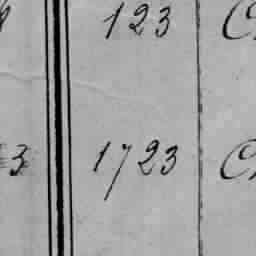 123 C
3 1723 C